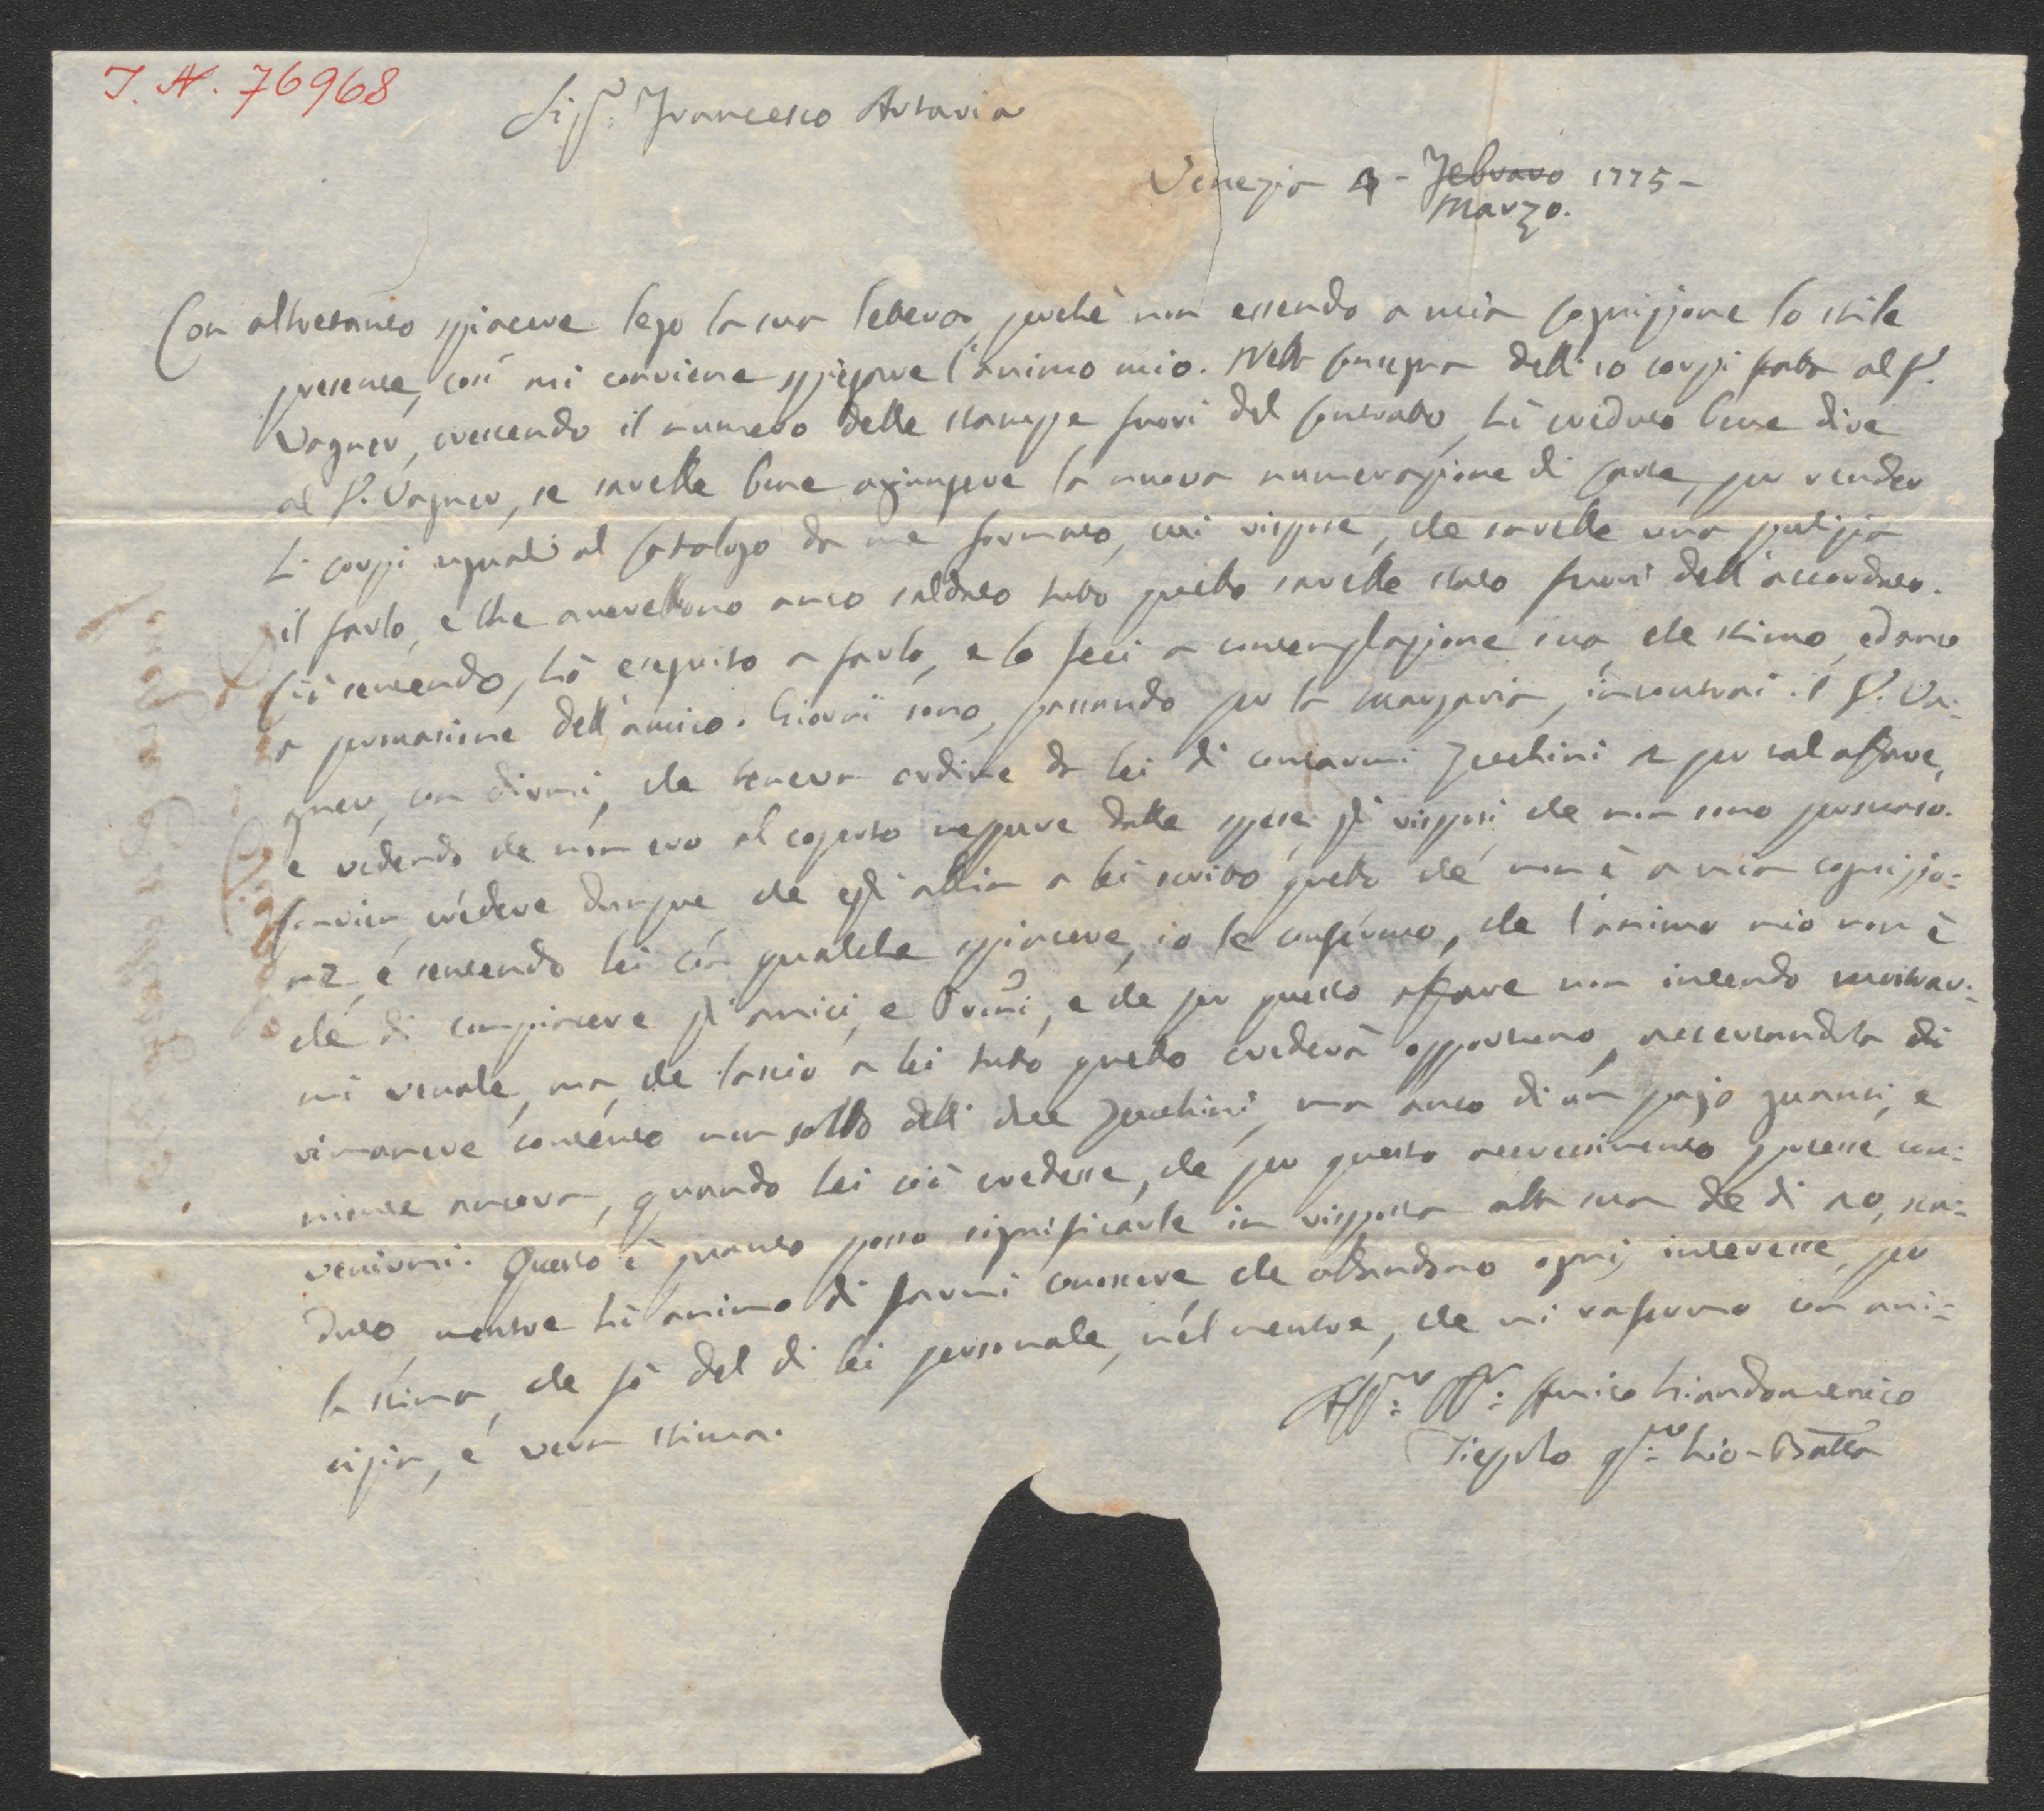 I. N. 76968
Sigr: Francesco Artaria
Venezia 4 - Febraro 1775 -
Marzo.
Con altretanto spiacere lego la sua letera, perchè non essendo a mia cognizione lo stile
presente, così mi conviene spiegare l'animo mio. Nella consegna delli 10 corpi fatta al Sr.
Vagner, crescendo il numero delle stampe fuori del contratto, hò creduto bene dire
al Sr. Vagner, se sarebbe bene agiungere la nuova numerazione di carte, per render
li corpi uguali al Catalogo da me formato, mi rispose, che sarebbe una pulizia
il farlo, e che averebbono anco saldato tutto quello sarebbe stato fuori dell'accordato.
Ciò sentendo, hò eseguito a farlo, e lo feci a contemplazione sua, che stimo, ed anco
a persuasione dell'amico. Giorni sono, passando per la marzaria, incontrai il Sr. Va:
gner, con dirmi, che teneva ordine da lei di contarmi Zecchini 2 per tal affare,
e vedendo che non ero al coperto neppure dalle spese gli risposi, che non sono persuaso.
Convien credere dunque che egli abbia a lei scritto quello che non è a mia cognizio:
ne, e sentendo lei con qualche spiacere, io le confermo, che l'animo mio non è
che di compiacere gl'amici, e Proni, e che per questo affare non intendo mostrar:
mi venale, ma che lascio a lei tutto quello crederà opportuno, accertandola di
rimanere contento non sollo delli due Zecchini, ma anco di un pajo guanti, e
niente ancora, quando lei ciò credesse, che per questo accrescimento potesse con:
venirmi. Questo è quanto posso significarle in risposta alla sua de di 20, sca:
duto, mentre hò animo di farmi conoscere, che abandono ogni interesse, per
la stima, che fò del di lei personale, nel mentre, che mi rafermo con ami:
cizia, e vera stima.
Affmo: Sr: Amico Giandomenico
Tiepolo qm: Gio-Batta